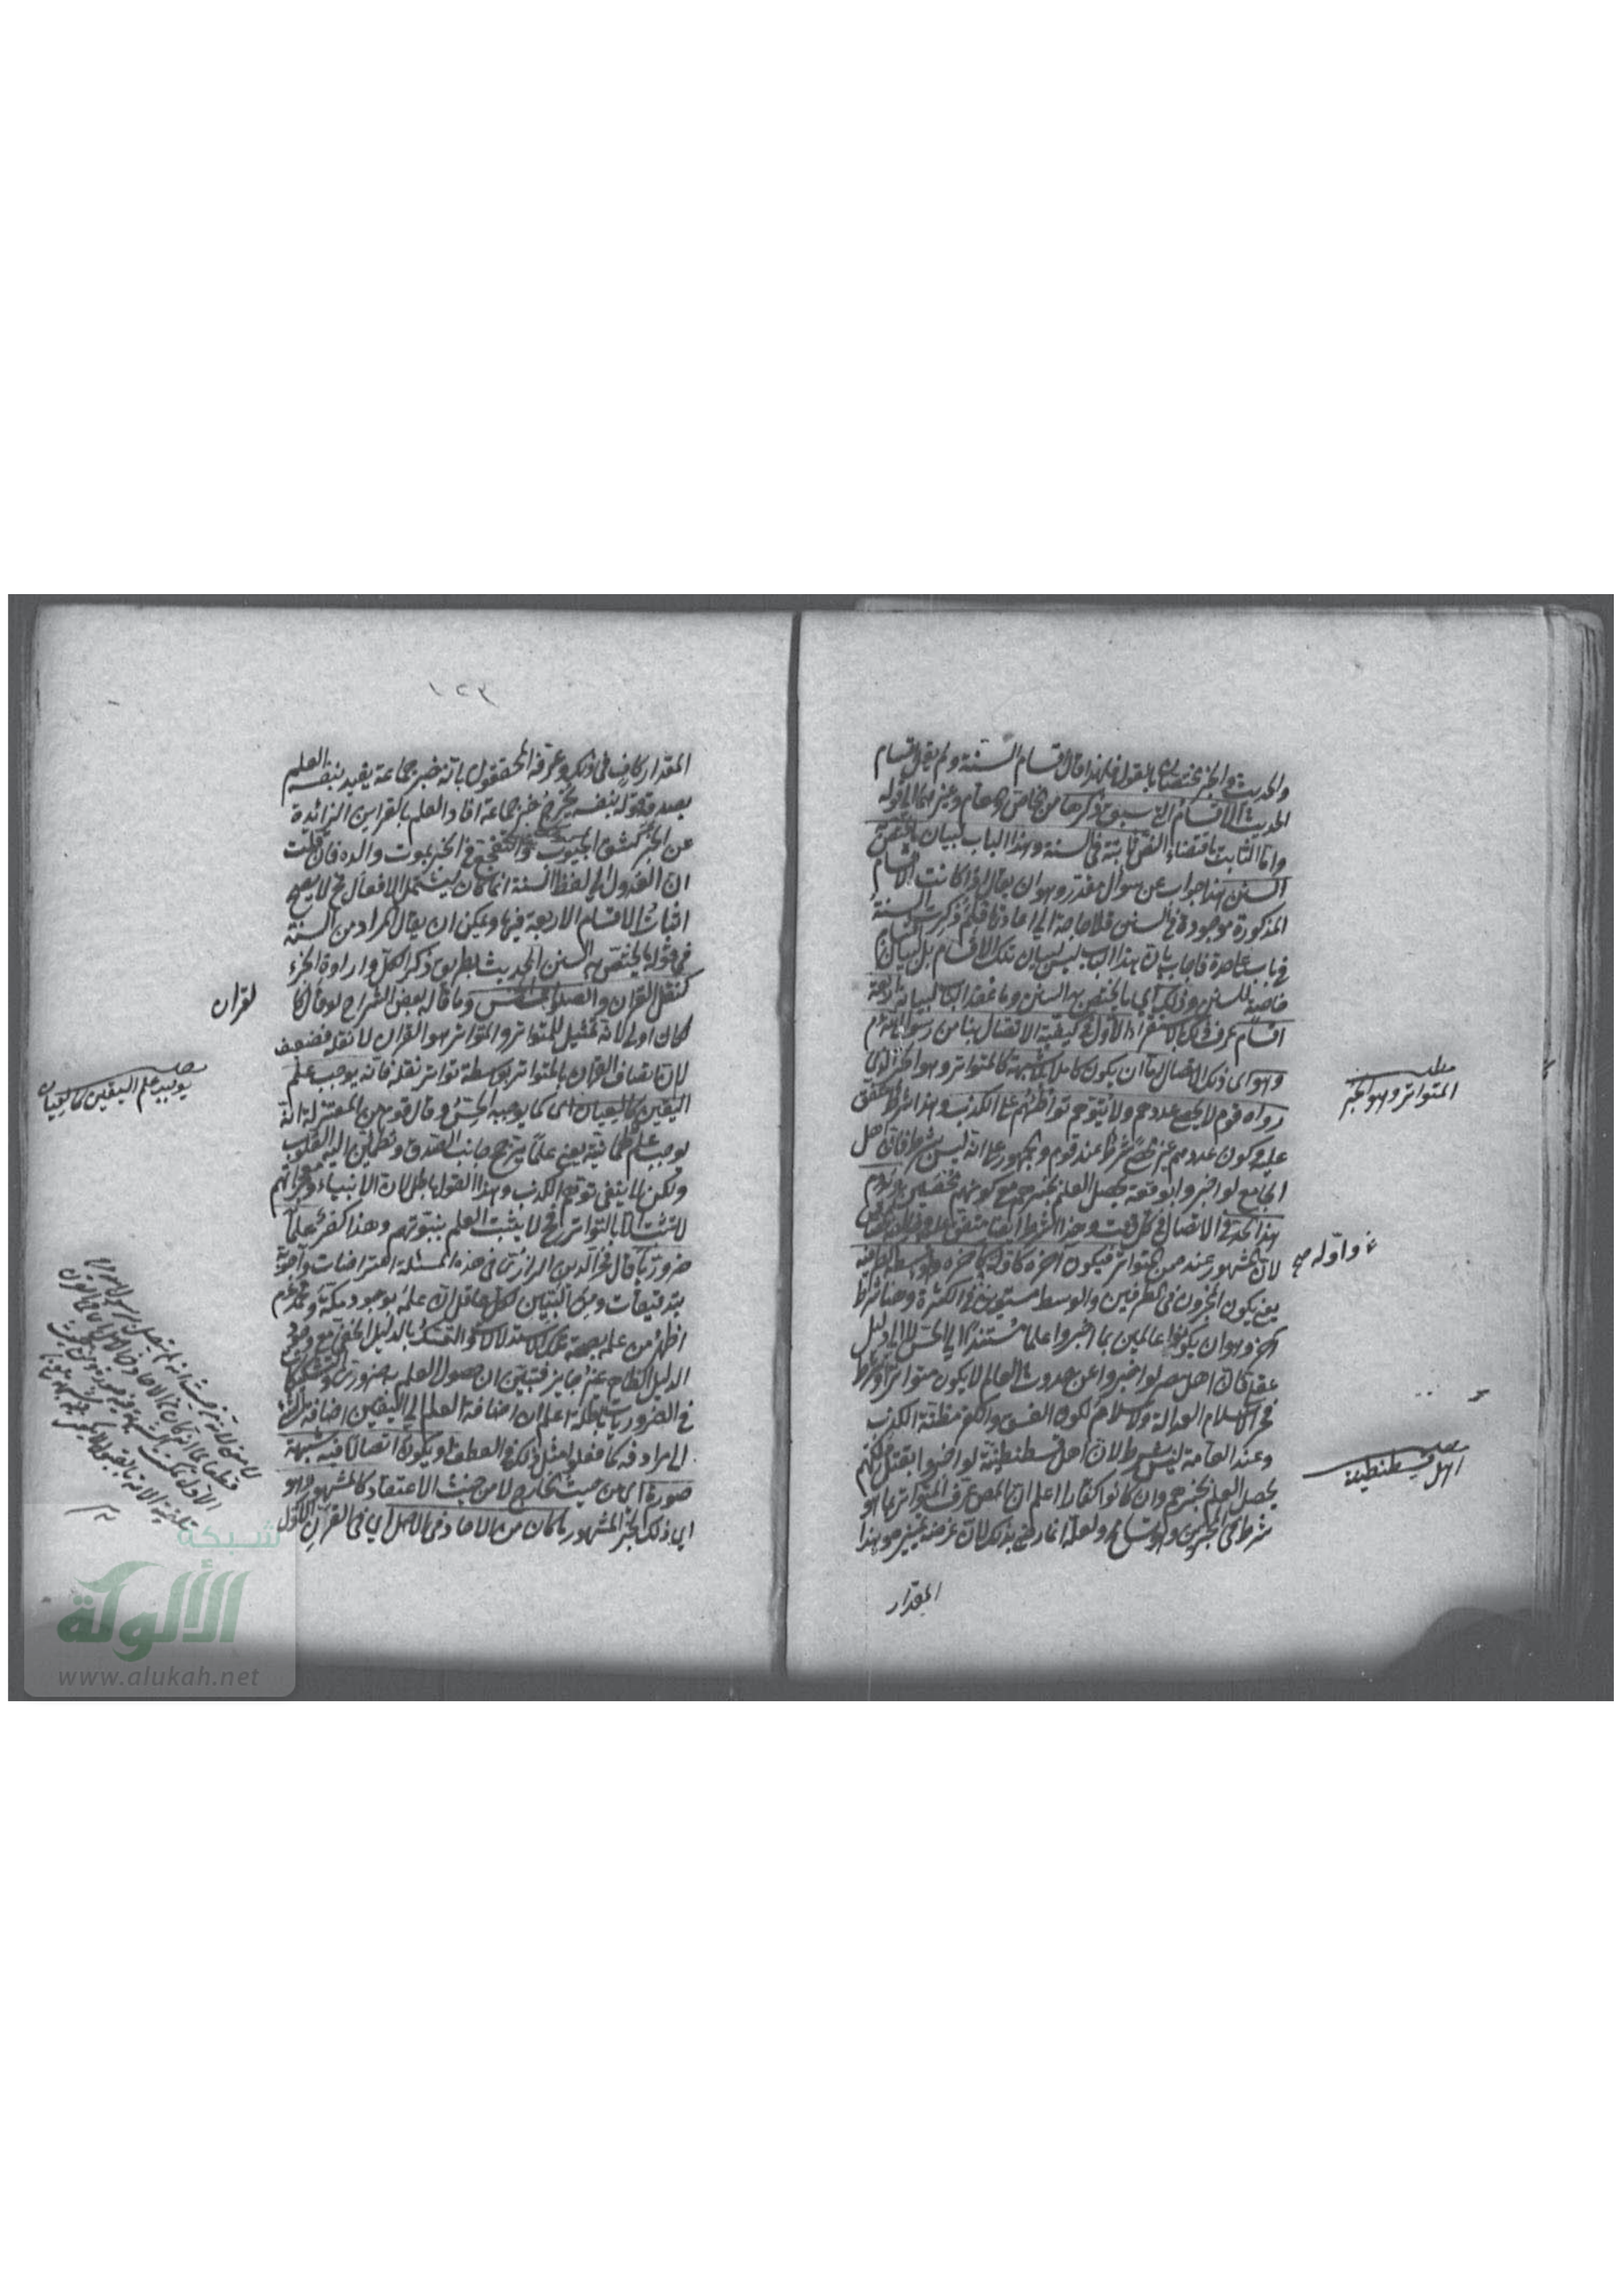 والحديث والخبر مختصان بالقول فلهذا قال اقسام السنة ولم يقل اقسام
الحديث الاقسام التي سبق ذكرها من الخاص والعام وغيرهما الى قوله
واما الثابت باقتضاء النص ثابتة في السنة وهذا الباب لبيان ما يختص به
السنن هذا جواب عن سؤال مقدر وهو ان يقال اذا كانت الاقسام
المذكورة موجودة في السنن فلا حاجة الى اعادتها فلم ذكرت السنة
في باب على حدة فاجاب بان هذا الباب ليس لبيان تلك الاقسام بل لبيان
خاصية للسنن وذلك اي ما يختص به السنن وما عقد الباب لبيانه اربعة
اقسام عرف ذلك بالاستقراء الاول في كيفية الاتصال بنا من رسول الله
وهو اى ذلك الاتصال اما ان يكون كاملا بلا شبهة كالمتواتر وهو الخبر الذي
رواه قوم لا يحصى عددهم ولا يتوهم تواطئهم على الكذب وهذا شرط متفق
عليه وكون عددهم غير محصى شرط عند قوم والجمهور على انه ليس بشرط فان اهل
الجامع لو اخبروا بواقعة يحصل العلم بخبرهم مع كونهم محصين ويدوم
هذا الحد في الاتصال في كل وقت وهذا الشرط ايضا متفق عليه
لان المشهور عندهم من المتواتر فيكون آخره كاوله واوله كآخره واوسطه كطرفيه
يعني يكون المخبرون في الطرفين والوسط مستوين في الكثرة وهنا شرط
آخر وهو ان يكونوا عالمين بما اخبروا علما مستندا الى الحس لا الى دليل
عقلي فان اهل مصر لو اخبروا عن حدوث العالم لا يكون متواترا وشرط
فخر الاسلام العدالة والاسلام لكون الفسق والكفر مظنة الكذب
وعند العامة ليس بشرط لان اهل قسطنطينة لو اخبروا بقتل ملكهم
يحصل العلم بخبرهم وان كانوا كفارا اعلم ان المص عرف المتواتر بما هو
شرط في المخبرين وهو تسامح ولعله انما رضي بذلك لان غرضه تمييزه وهذا
المقدار
مطلب
المتواتر وهو الخبر
واوله صح
مطلب
اهل قسطنطينة
١٢٢
المقدار كاف في ذلك وعرفه المحققون بانه خبر جماعة يفيد بنفسه العلم
بصدقه قوله بنفسه يخرج خبر جماعة افاد العلم بالقراين الزائدة
عن الخبر كشق الجيوب والتفجع في الخبر بموت والده فان قلت
ان العدول الى لفظ السنة انما كان ليشتمل الافعال فح لا يصح
اثبات الاقسام الاربعة فيها ويمكن ان يقال المراد من السنة
في قوله ما يختص به السنن الحديث بطريق ذكر الكل وارادة الجزء
كنقل القران والصلوات الخمس وما قاله بعض الشراح لو قال كالقران
لكان اولى لانه تمثيل للمتواتر والمتواتر هو القران لا نقله فضعيف
لان اتصاف القران بالمتواتر بواسطة تواتر نقله فانه يوجب علم
اليقين كالعيان اى كما يوجبه الحس وقال قوم من المعتزلة انه
يوجب علم طمانية يعني علما يترجح جانب الصدق وتطمئن اليه القلوب
ولكن لا ينفي توهم الكذب وهذا القول باطل لان الانبياء ومعجزاتهم
لا تثبت الا بالتواتر فح لا يثبت العلم بنبوتهم وهذا كفر علما
ضروريا قال فخر الدين الرازي في هذه المسئلة اعتراضات واجوبة
بتدقيقات ومن البين لكل عاقل ان علمه بوجود مكة ومحمد عم
اظهر من علمه بصحة تلك الاستدلالات والتمسك بالدليل الخفي مع وجود
الدليل الظاهر غير جايز فتبين ان حصول العلم به ضروري والتشكيك
في الضروريات باطلة اعلم ان اضافة العلم الى اليقين اضافة الشئ
الى مرادفه كما فعلوا مثل ذلك في العطف او يكون اتصالا فيه شبهة
صورة اى من حيث الخارج لا من حيث الاعتقاد كالمشهور وهو
اي ذلك الخبر المشهور ما كان من الآحاد في الاصل اي في القرن الاول
لقران
مطلب
يوجب علم اليقين كالعيان
شبكة
الألوكة
www.alukah.net